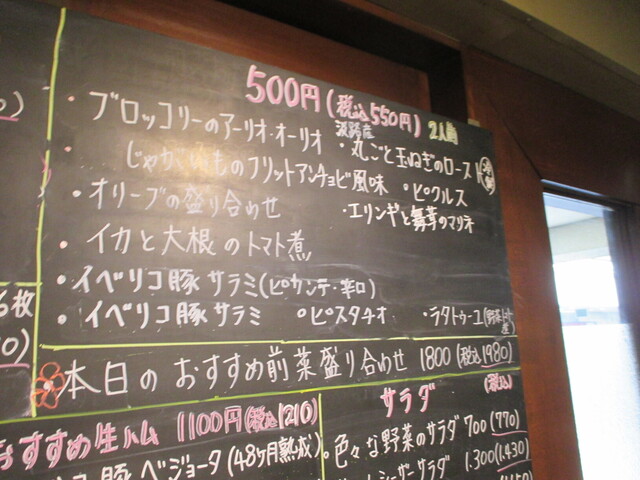 500円(税込550円) 2人前
・ブロッコリーのアーリオ・オーリオ
淡路産
・丸ごと玉ねぎのロースト
・じゃがいものフリットアンチョビ風味
・ピクルス
・オリーブの盛り合わせ
・エリンギと舞茸のマリネ
・イカと大根のトマト煮
・イベリコ豚サラミ(ピカンテ・辛口)
・イベリコ豚サラミ
・ピスタチオ
・ラタトゥーユ
6枚
本日のおすすめ前菜盛り合わせ 1800(税込1980)
おすすめ生ハム 1100円(税込1210)
ベジョータ(48ヶ月熟成)
サラダ (税込)
・色々な野菜のサラダ 700(770)
シーザーサラダ 1,300(1,430)